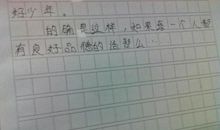 好少年。
的确是这样，如果每一个人都
有良好品德的话那么